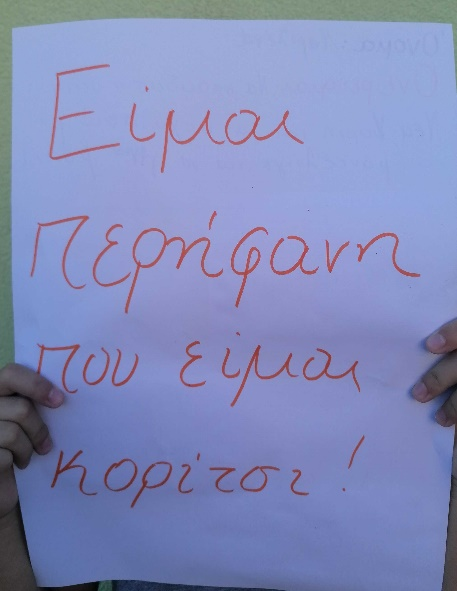 Είμαι
περήφανη
που είμαι
κορίτσι!